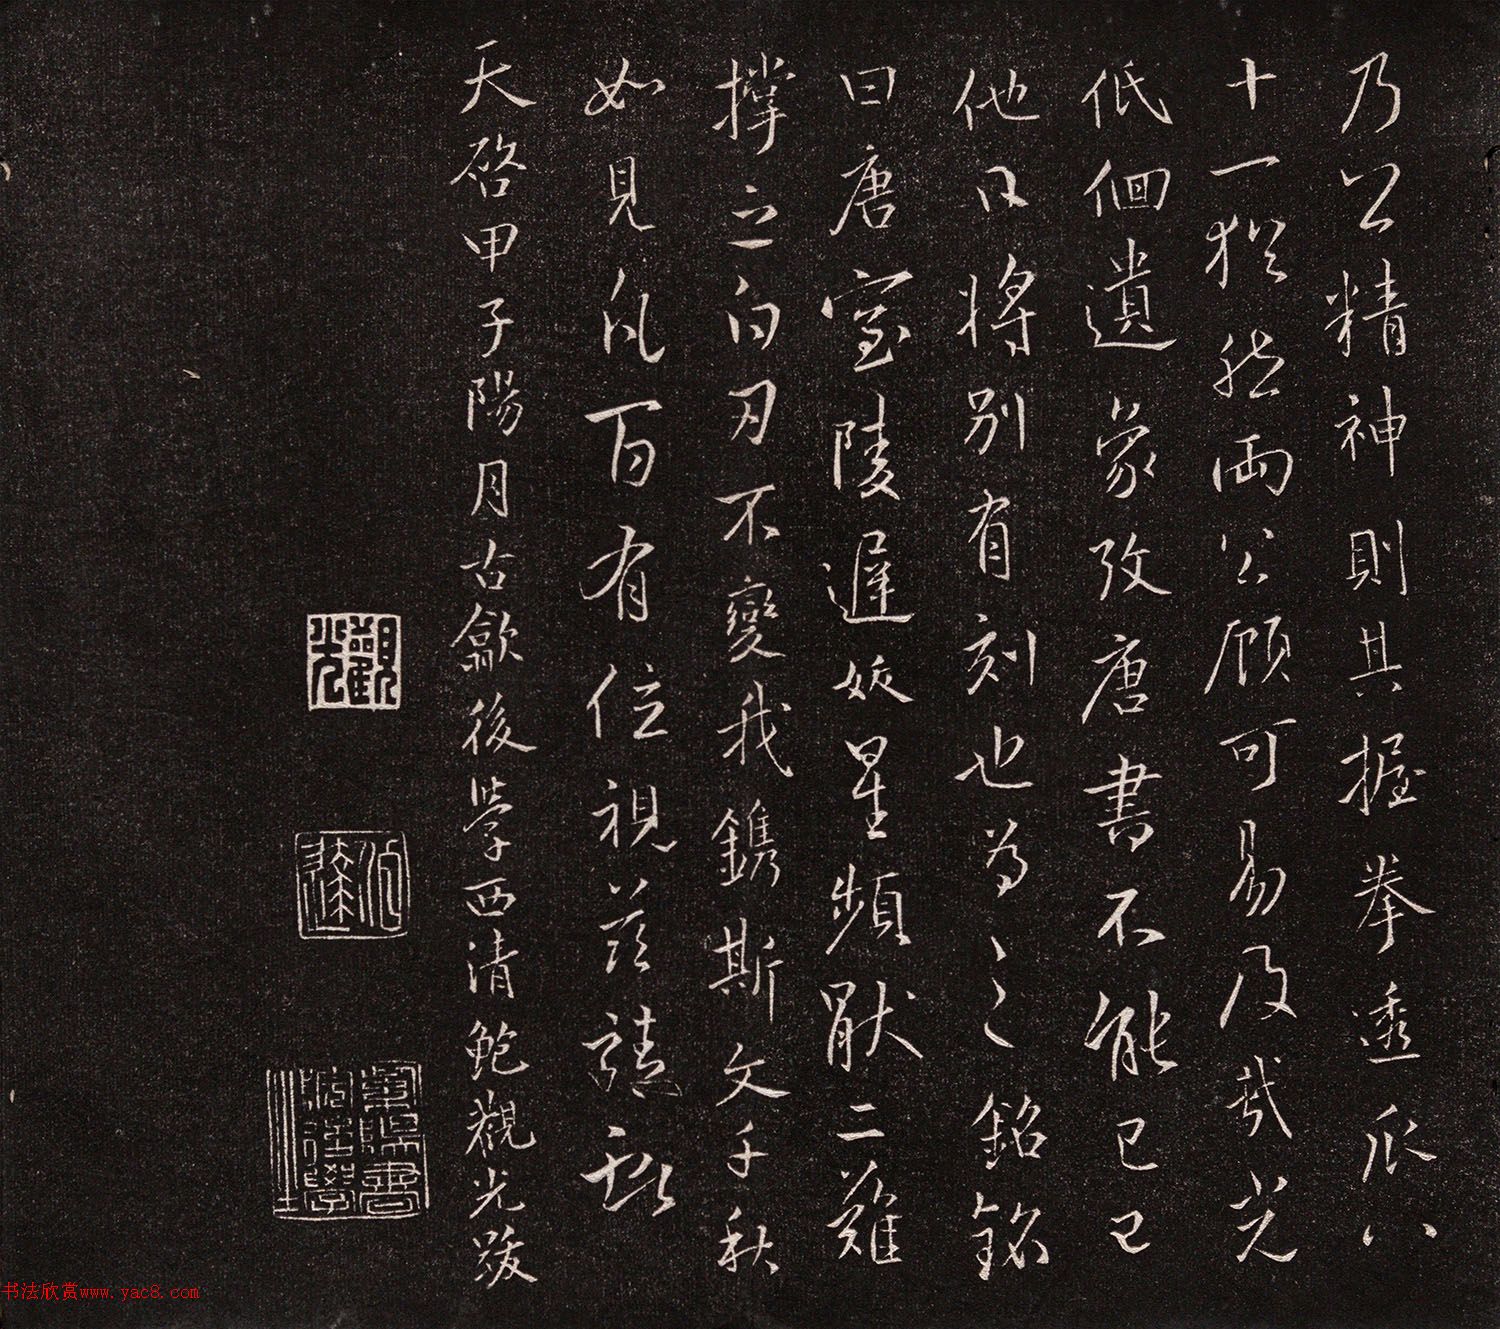 乃公精神則其握拳透爪八
十一猶然兩公顧可易及哉光
低佪遺象攷唐書不能已已
他日將別有刻也為之銘銘
曰唐室陵遲妖星頻厭二難
撐之白刃不變我鐫斯文千秋
如見凡百有位視茲
天啓甲子陽月古歙後學西清鮑觀光跋
觀光
书法欣赏www.yac8.com